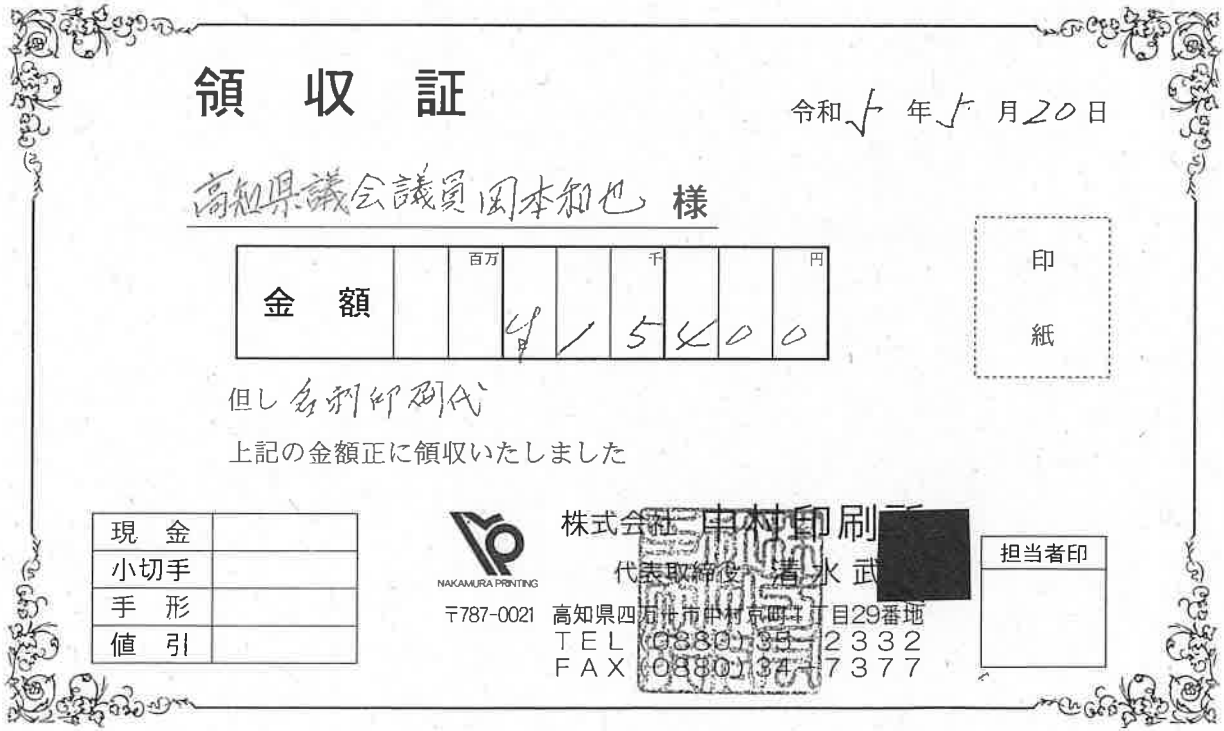 領収証
令和5年5月20日
高知県議会議員岡本和也 様
金額 百万 千 円
¥15400
但し 名刺印刷代
上記の金額正に領収いたしました
現金
小切手
手形
値引
NAKAMURA PRINTING
株式会社 中村印刷所
代表取締役 清水武
〒787-0021 高知県四万十市中村京町4丁目29番地
TEL (0880) 35-2332
FAX (0880) 34-7377
印紙
担当者印